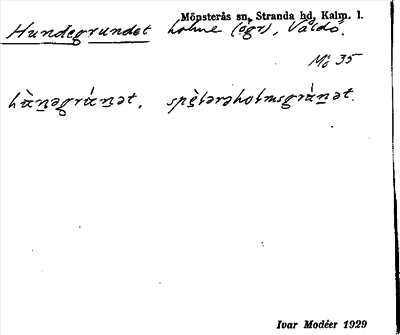 Mönsterås sn, Stranda hd, Kalm. l.
Hundegrundet holme (ögr), Valdö.
Mö 35
hànəgrúnət, spèlərəholmsgrúnət.
Ivar Modéer 1929